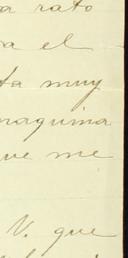 a rato
a el
ta muy
maquina
ue me
V. que